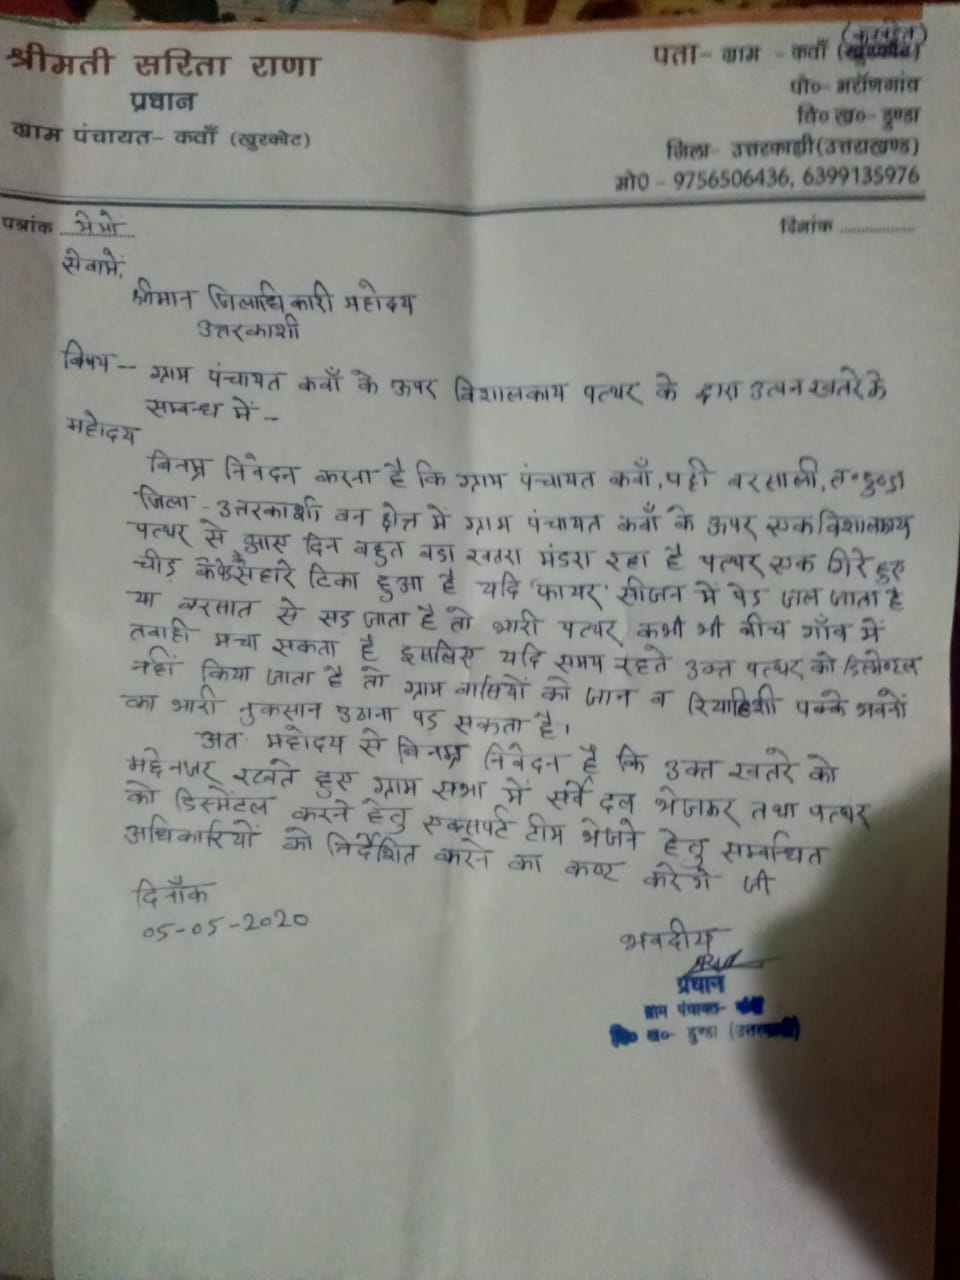 श्रीमती सरिता राणा
प्रधान
ग्राम पंचायत- कवाँ (खुरकोट)
पता- ग्राम - कवाँ (खुरकोट)
पो०- भराँणगांव
वि० ख०- डुण्डा
जिला- उत्तरकाशी(उत्तराखण्ड)
मो0 - 9756506436, 6399135976
पत्रांक मेमो
दिनांक ..................
सेवामें,
श्रीमान जिलाधिकारी महोदय
उत्तरकाशी
विषय - ग्राम पंचायत कवाँ के ऊपर विशालकाय पत्थर के द्वारा उत्पन खतरे के
सम्बन्ध में -
महोदय
विनम्र निवेदन करना है कि ग्राम पंचायत कवाँ, पट्टी बरसाली, त०डुण्डा
जिला - उत्तरकाशी वन क्षेत्र में ग्राम पंचायत कवाँ के ऊपर एक विशालकाय
पत्थर से आए दिन बहुत बडा खतरा मंडरा रहा है पत्थर एक गिरे हुए
चीड़ के सहारे टिका हुआ है यदि 'फायर' सीजन में पेड जल जाता है
या बरसात से सड़ जाता है तो भारी पत्थर कभी भी बीच गाँव में
तबाही मचा सकता है इसलिए यदि समय रहते उक्त पत्थर को डिस्मेण्टल
नहीं किया जाता है तो ग्राम वासियों को जान व रियाहिशी पक्के भवनों
का भारी नुकसान उठाना पड़ सकता है।
अतः महोदय से विनम्र निवेदन है कि उक्त खतरे को
मद्देनजर रखते हुए ग्राम सभा में सर्वे दल भेजकर तथा पत्थर
को डिस्मेंटल करने हेतु एक्सपर्ट टीम भेजने हेतु सम्बन्धित
अधिकारियों को निर्देशित करने का कष्ट करेगें जी
दिनाँक
05-05-2020
भवदीय
प्रधान
ग्राम पंचायत-
वि० ख०- डुण्डा (उत्तरकाशी)